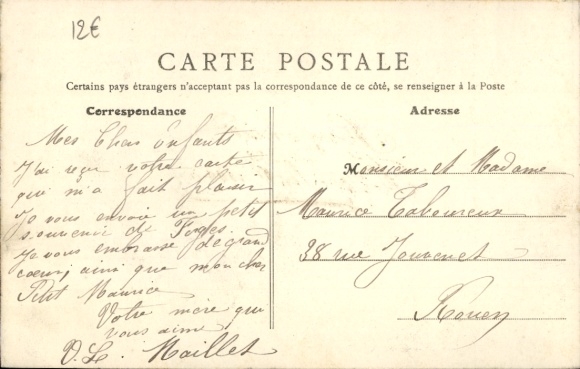 12€
CARTE POSTALE
Certains pays étrangers n'acceptant pas la correspondance de ce côté, se renseigner à la Poste
Correspondance
Mes Chers Enfants
J'ai reçu votre carte
qui m'a fait plaisir
Je vous envoie un petit
souvenir de Forges.
Je vous embrasse de grand
cœur, ainsi que mon cher
Petit Maurice
Votre mère qui
vous aime
V. L. Maillet
Adresse
Monsieur et Madame
Maurice Taboureux
38 rue Jouvenet
Rouen